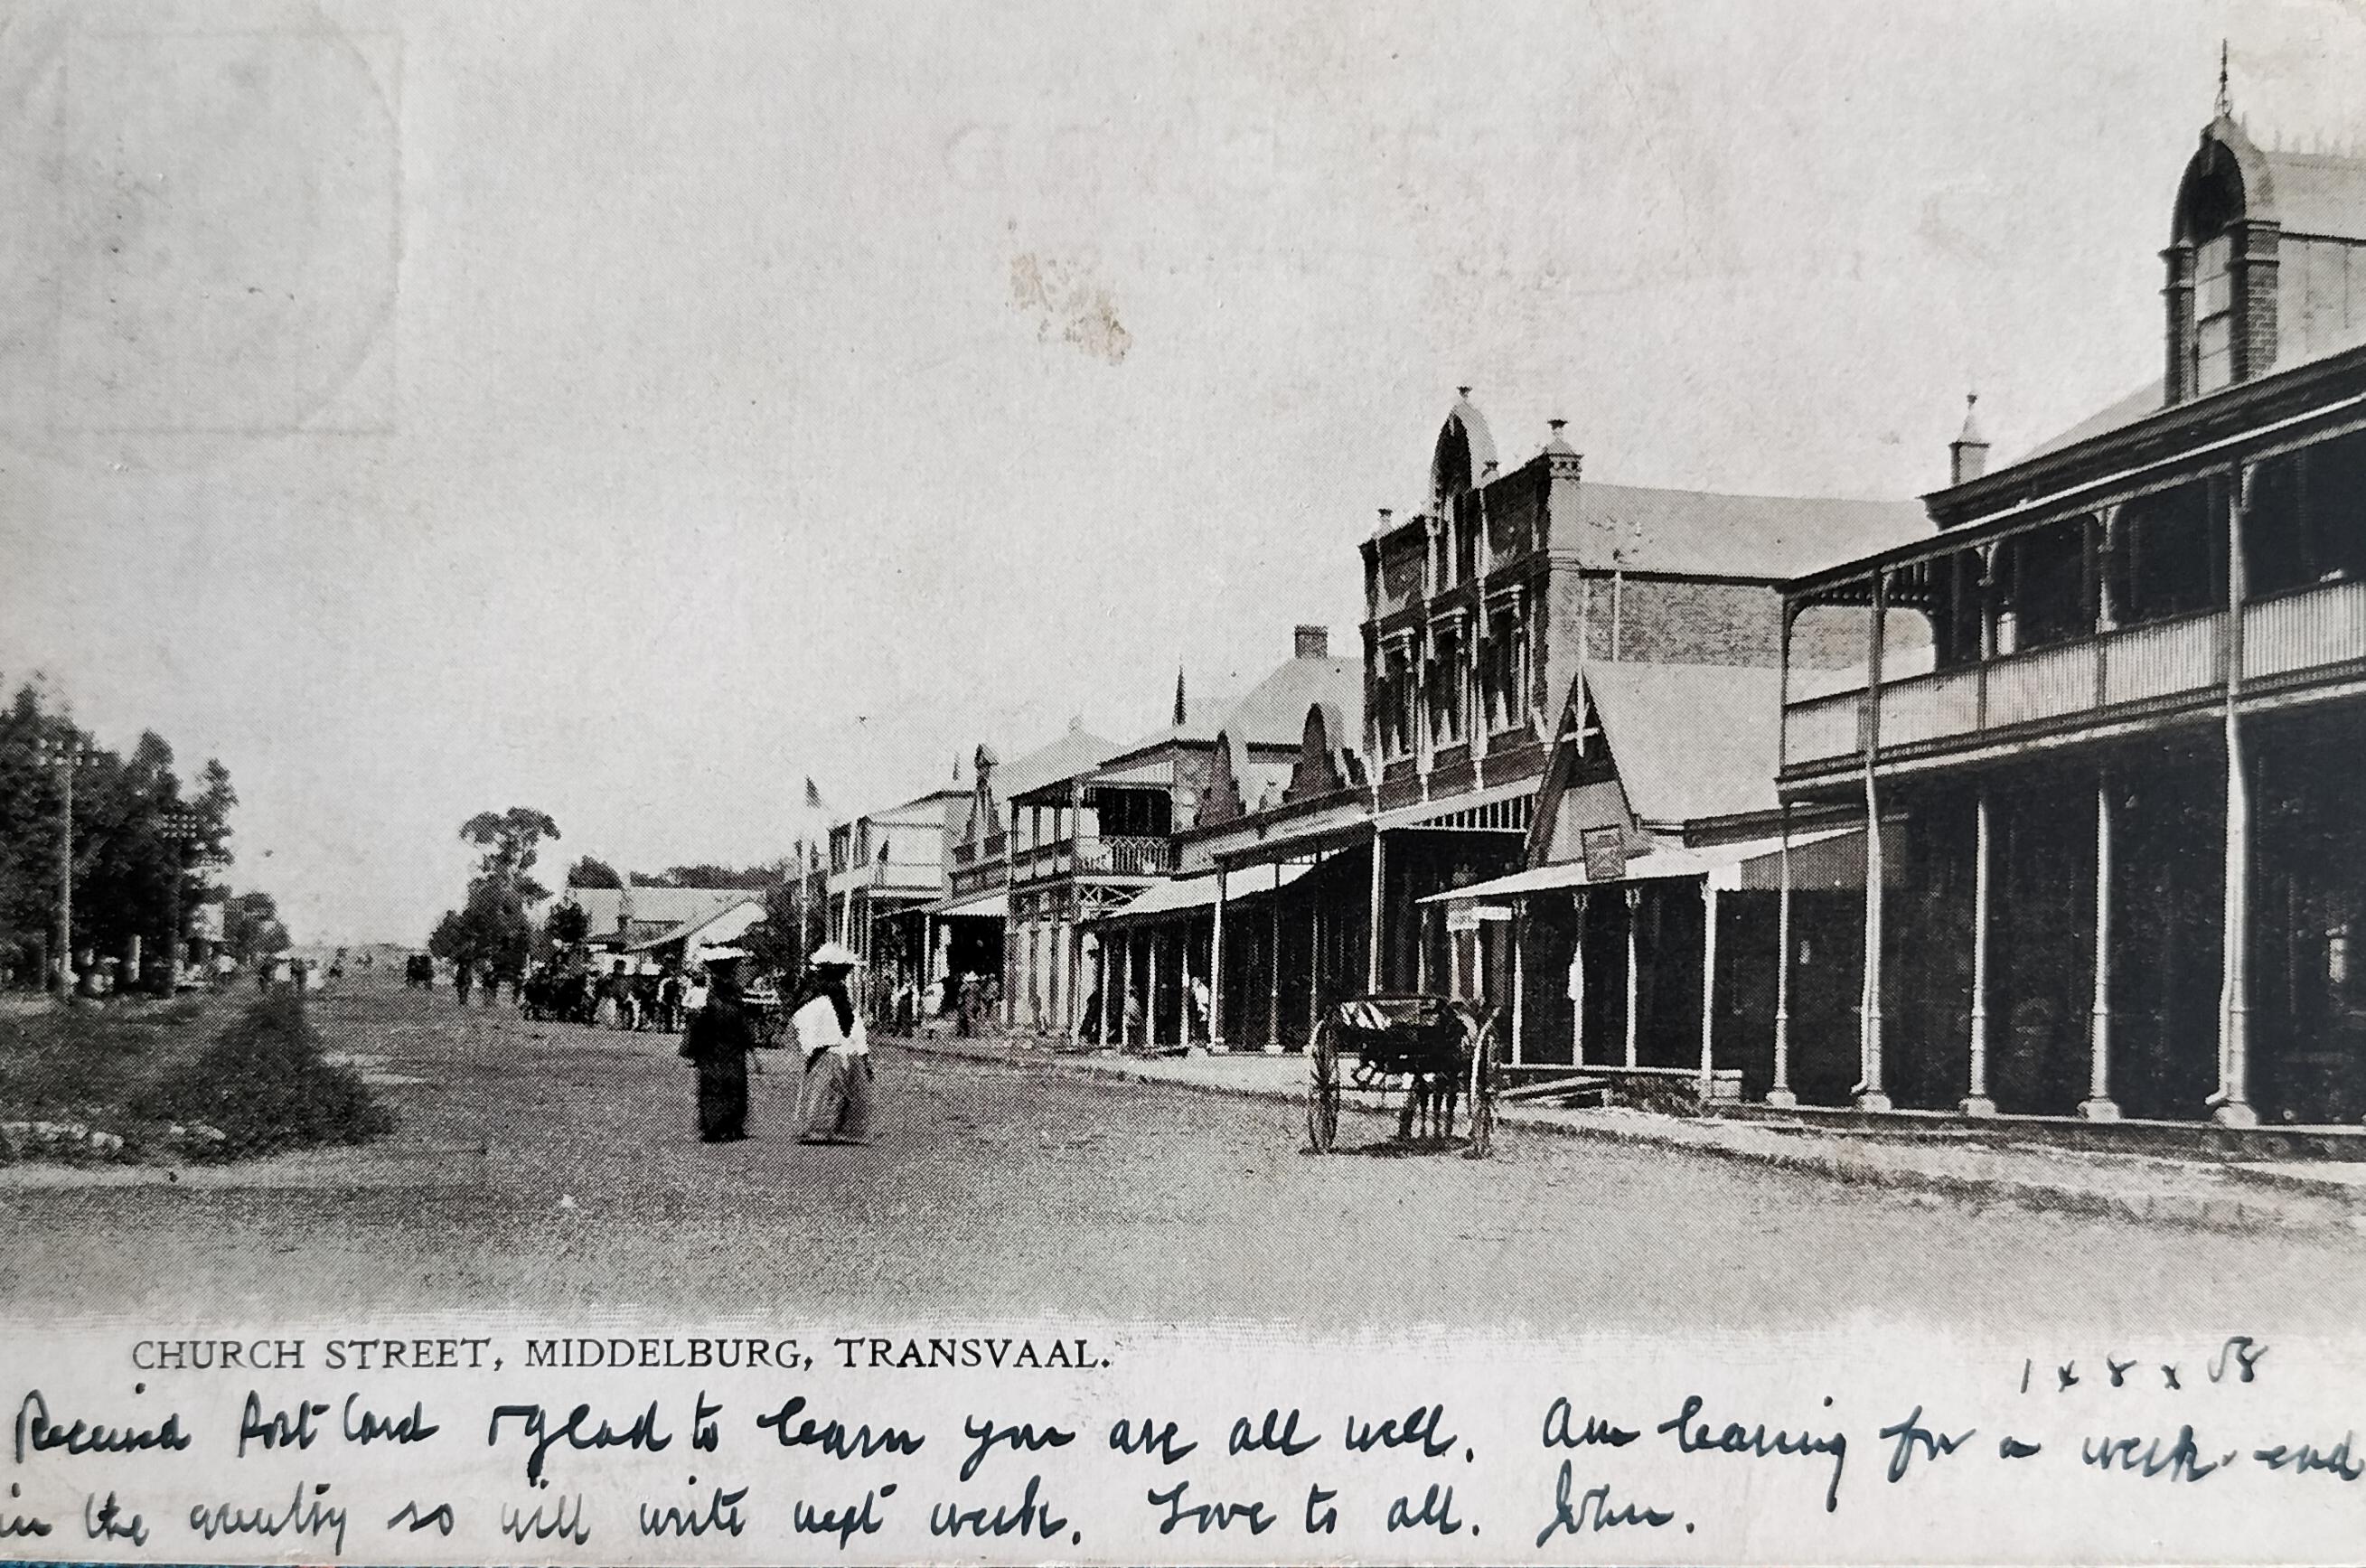 CHURCH STREET, MIDDELBURG, TRANSVAAL.
1 x 8 x 08
Received Post Card & glad to learn you are all well. Am leaving for a week-end
in the country so will write next week. Love to all. John.